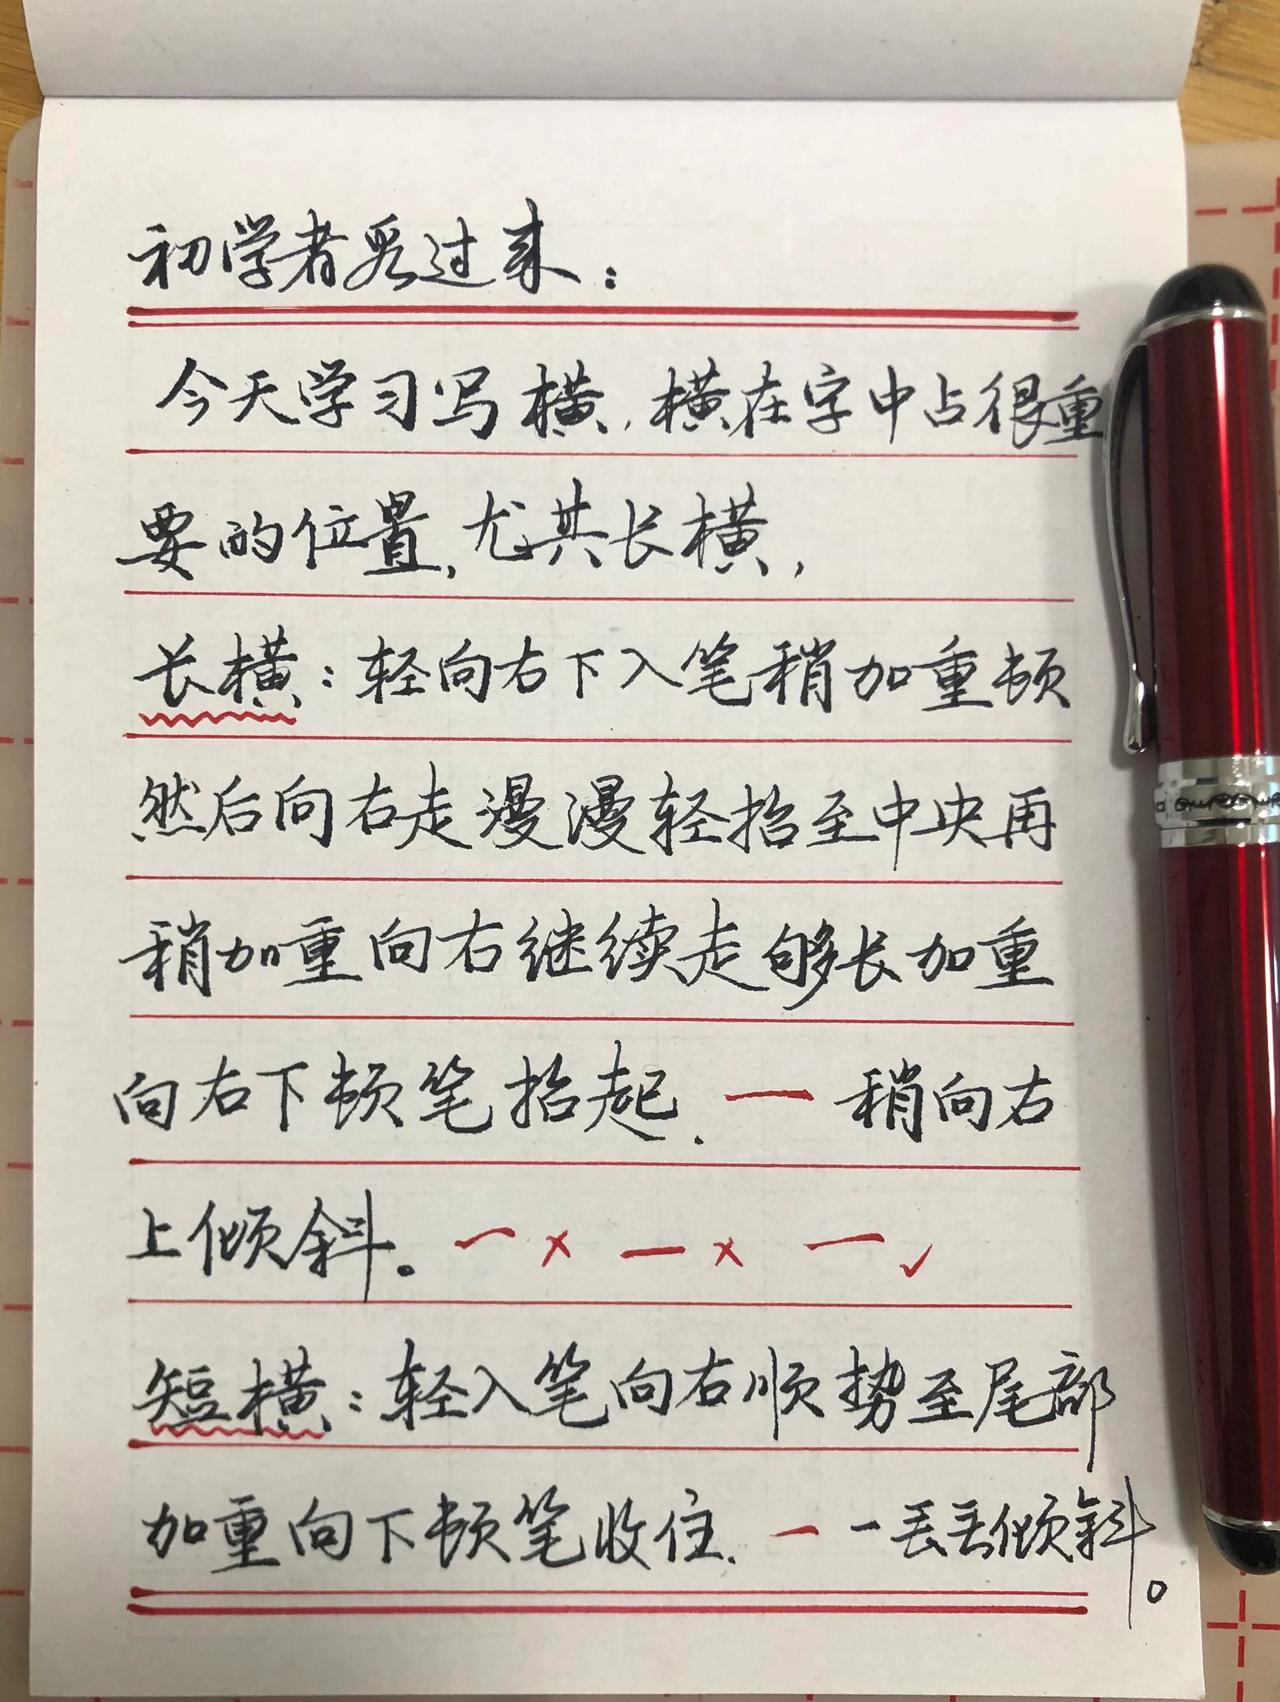 初学者看过来：
今天学习写横，横在字中占很重
要的位置，尤其长横，
长横：轻向右下入笔稍加重顿
然后向右走漫漫轻抬至中央再
稍加重向右继续走够长加重
向右下顿笔抬起. 一 稍向右
上倾斜。一 × 一 × 一 ✓
短横：轻入笔向右顺势至尾部
加重向下顿笔收住. 一 一丢丢倾斜。